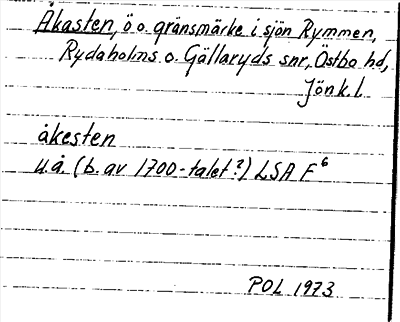 Åkasten, ö o. gränsmärke i sjön Rymmen,
Rydaholms o. Gällaryds snr, Östbo hd,
Jönk. l.
åkesten
u.å. (b. av 1700-talet?) LSA F6
POL 1973